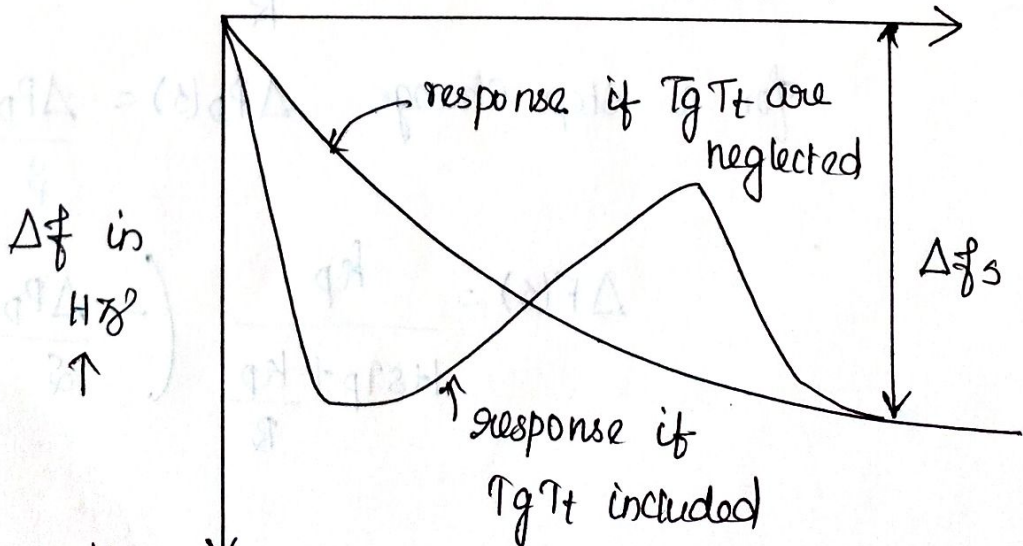 response if Tg Tt are
neglected
Δf in
Hz
↑
Δfs
response if
Tg Tt included